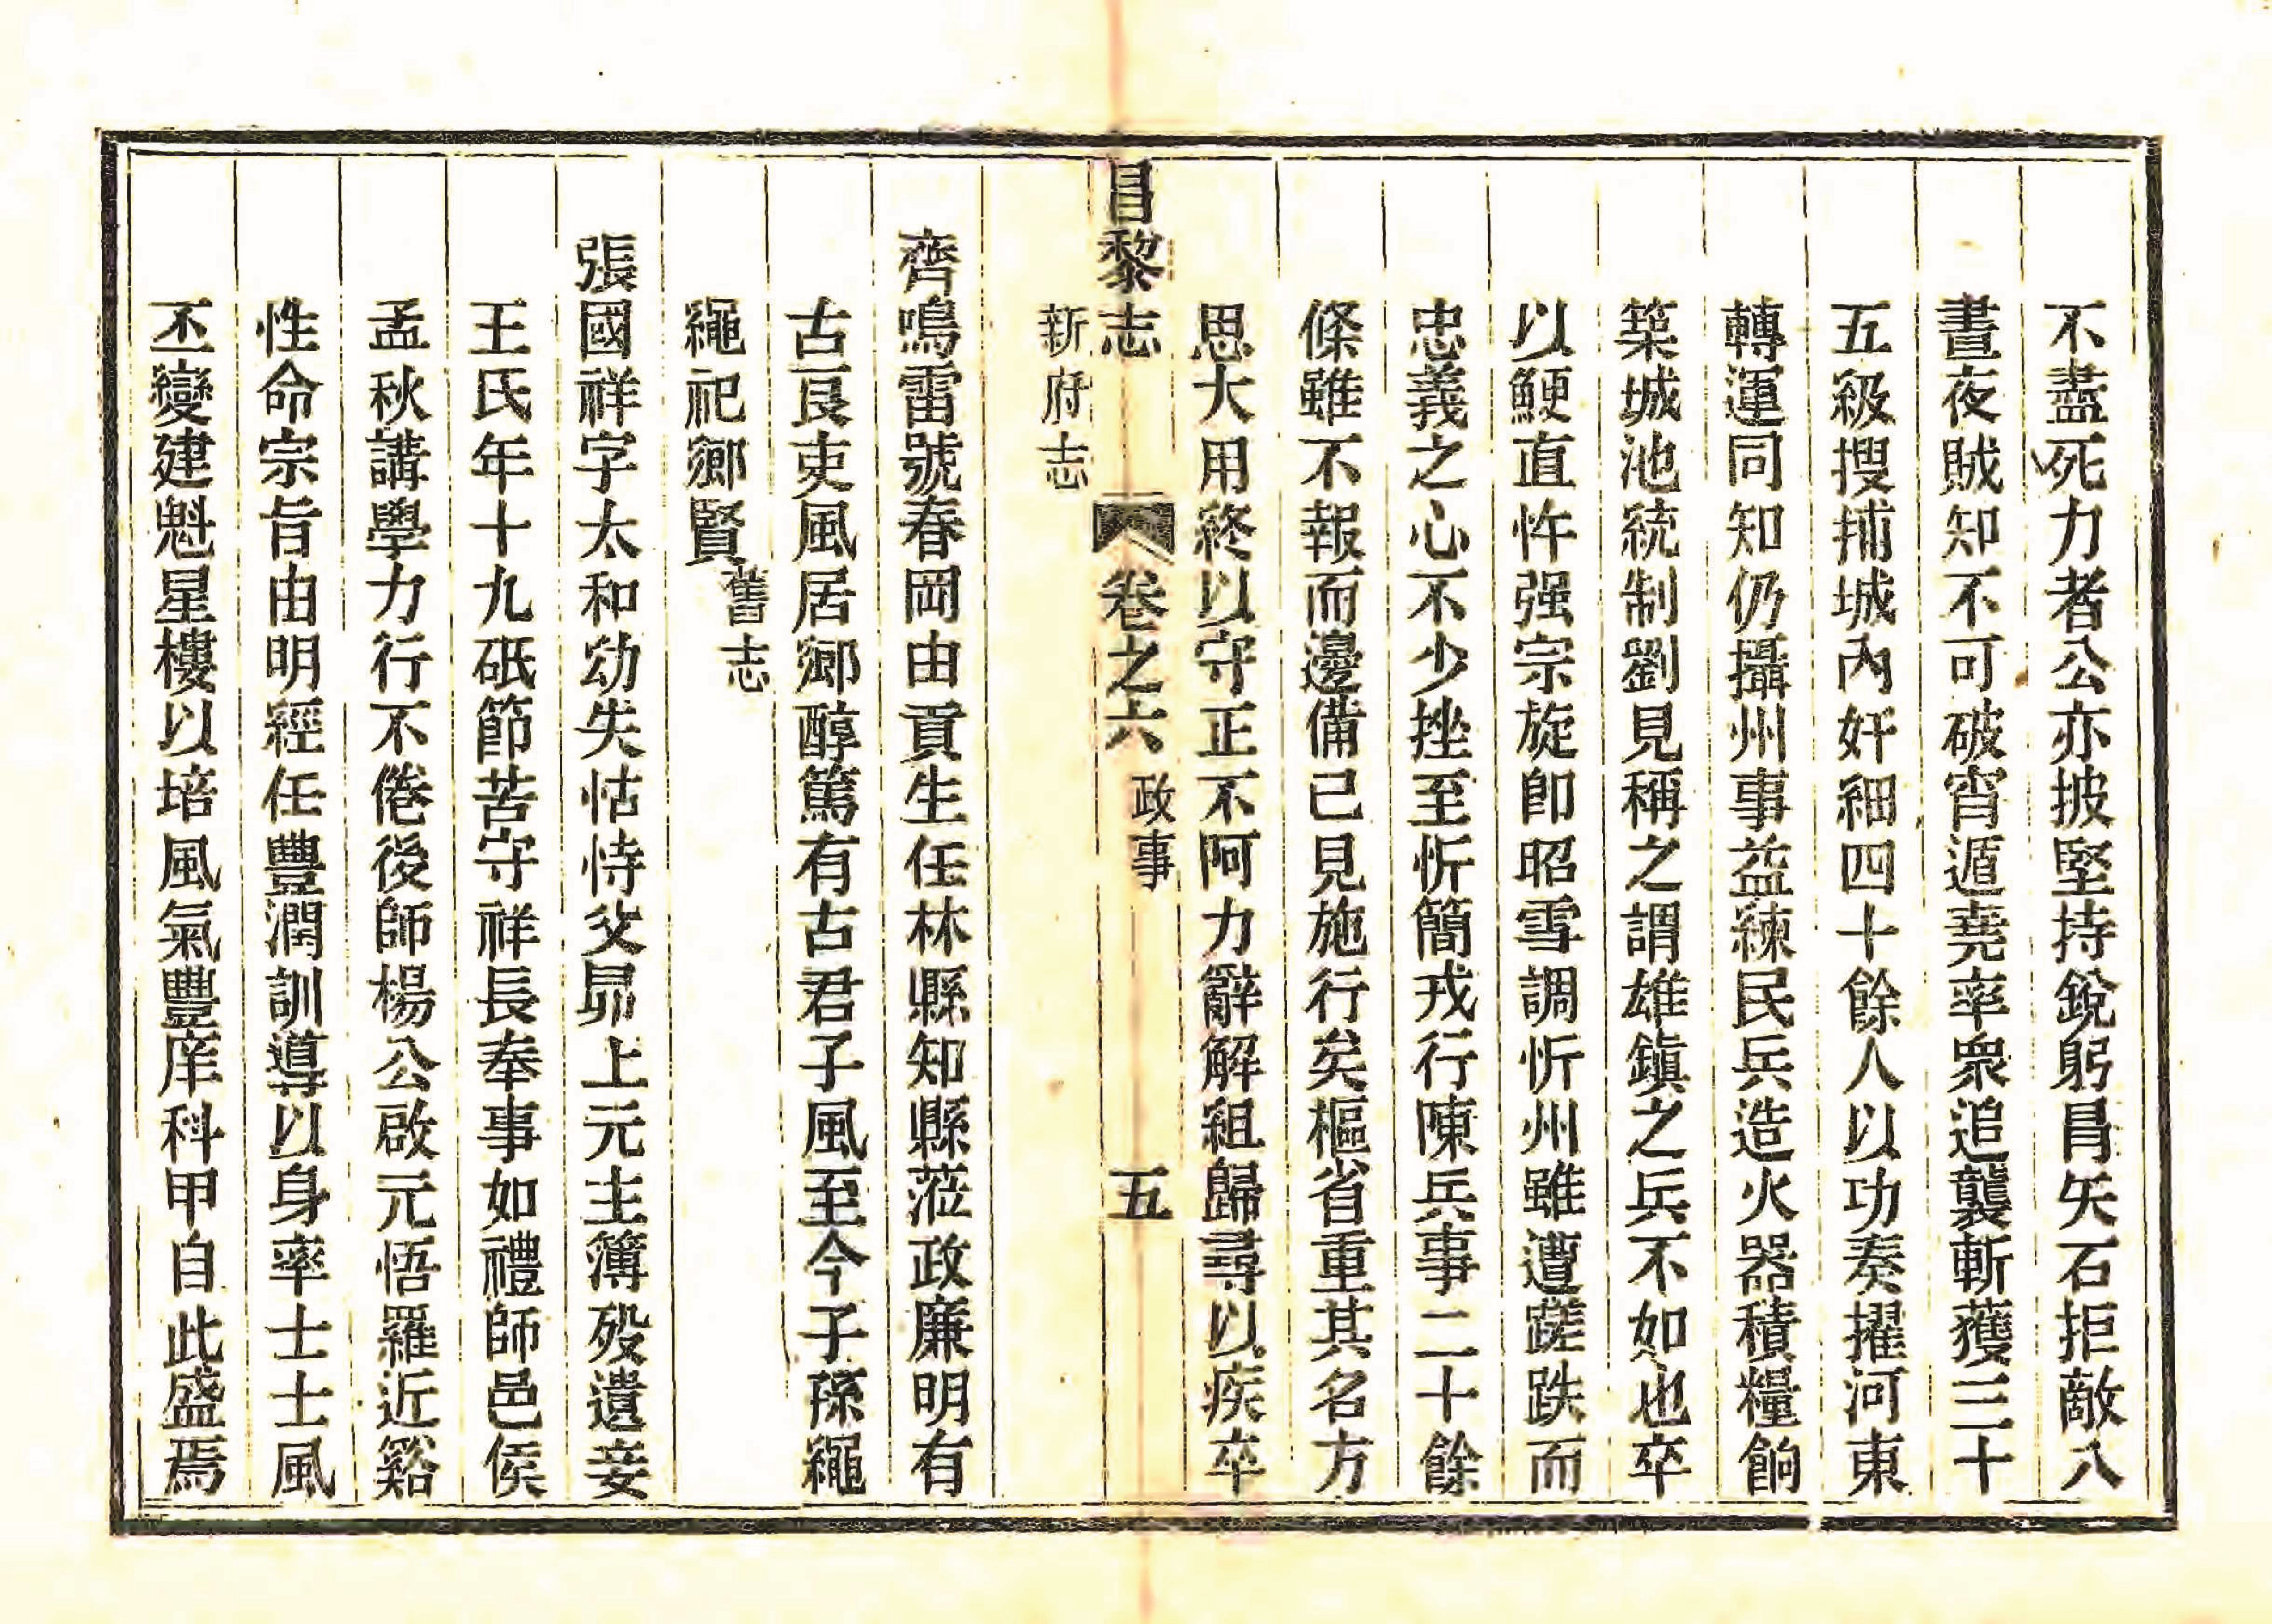 不盡死力者公亦披堅持銳躬冒矢石拒敵八
晝夜賊知不可破宵遁堯率眾追襲斬獲三十
五級搜捕城內奸細四十餘人以功奏擢河東
轉運同知仍攝州事益練民兵造火器積糧餉
築城池統制劉見稱之謂雄鎮之兵不如也卒
以鯁直忤强宗旋卽昭雪調忻州雖遭蹉跌而
忠義之心不少挫至忻簡戎行陳兵事二十餘
條雖不報而邊備已見施行矣樞省重其名方
思大用終以守正不阿力辭解組歸尋以疾卒
昌黎志 卷之六 政事 五
新府志
齊鳴雷號春岡由貢生任林縣知縣蒞政廉明有
古良吏風居鄉醇篤有古君子風至今子孫繩
繩祀鄉賢舊志
張國祥字太和幼失怙恃父昴上元主簿歿遺妾
王氏年十九砥節苦守祥長奉事如禮師邑侯
孟秋講學力行不倦後師楊公啟元悟羅近谿
性命宗旨由明經任豐潤訓導以身率士士風
丕變建魁星樓以培風氣豐庠科甲自此盛焉